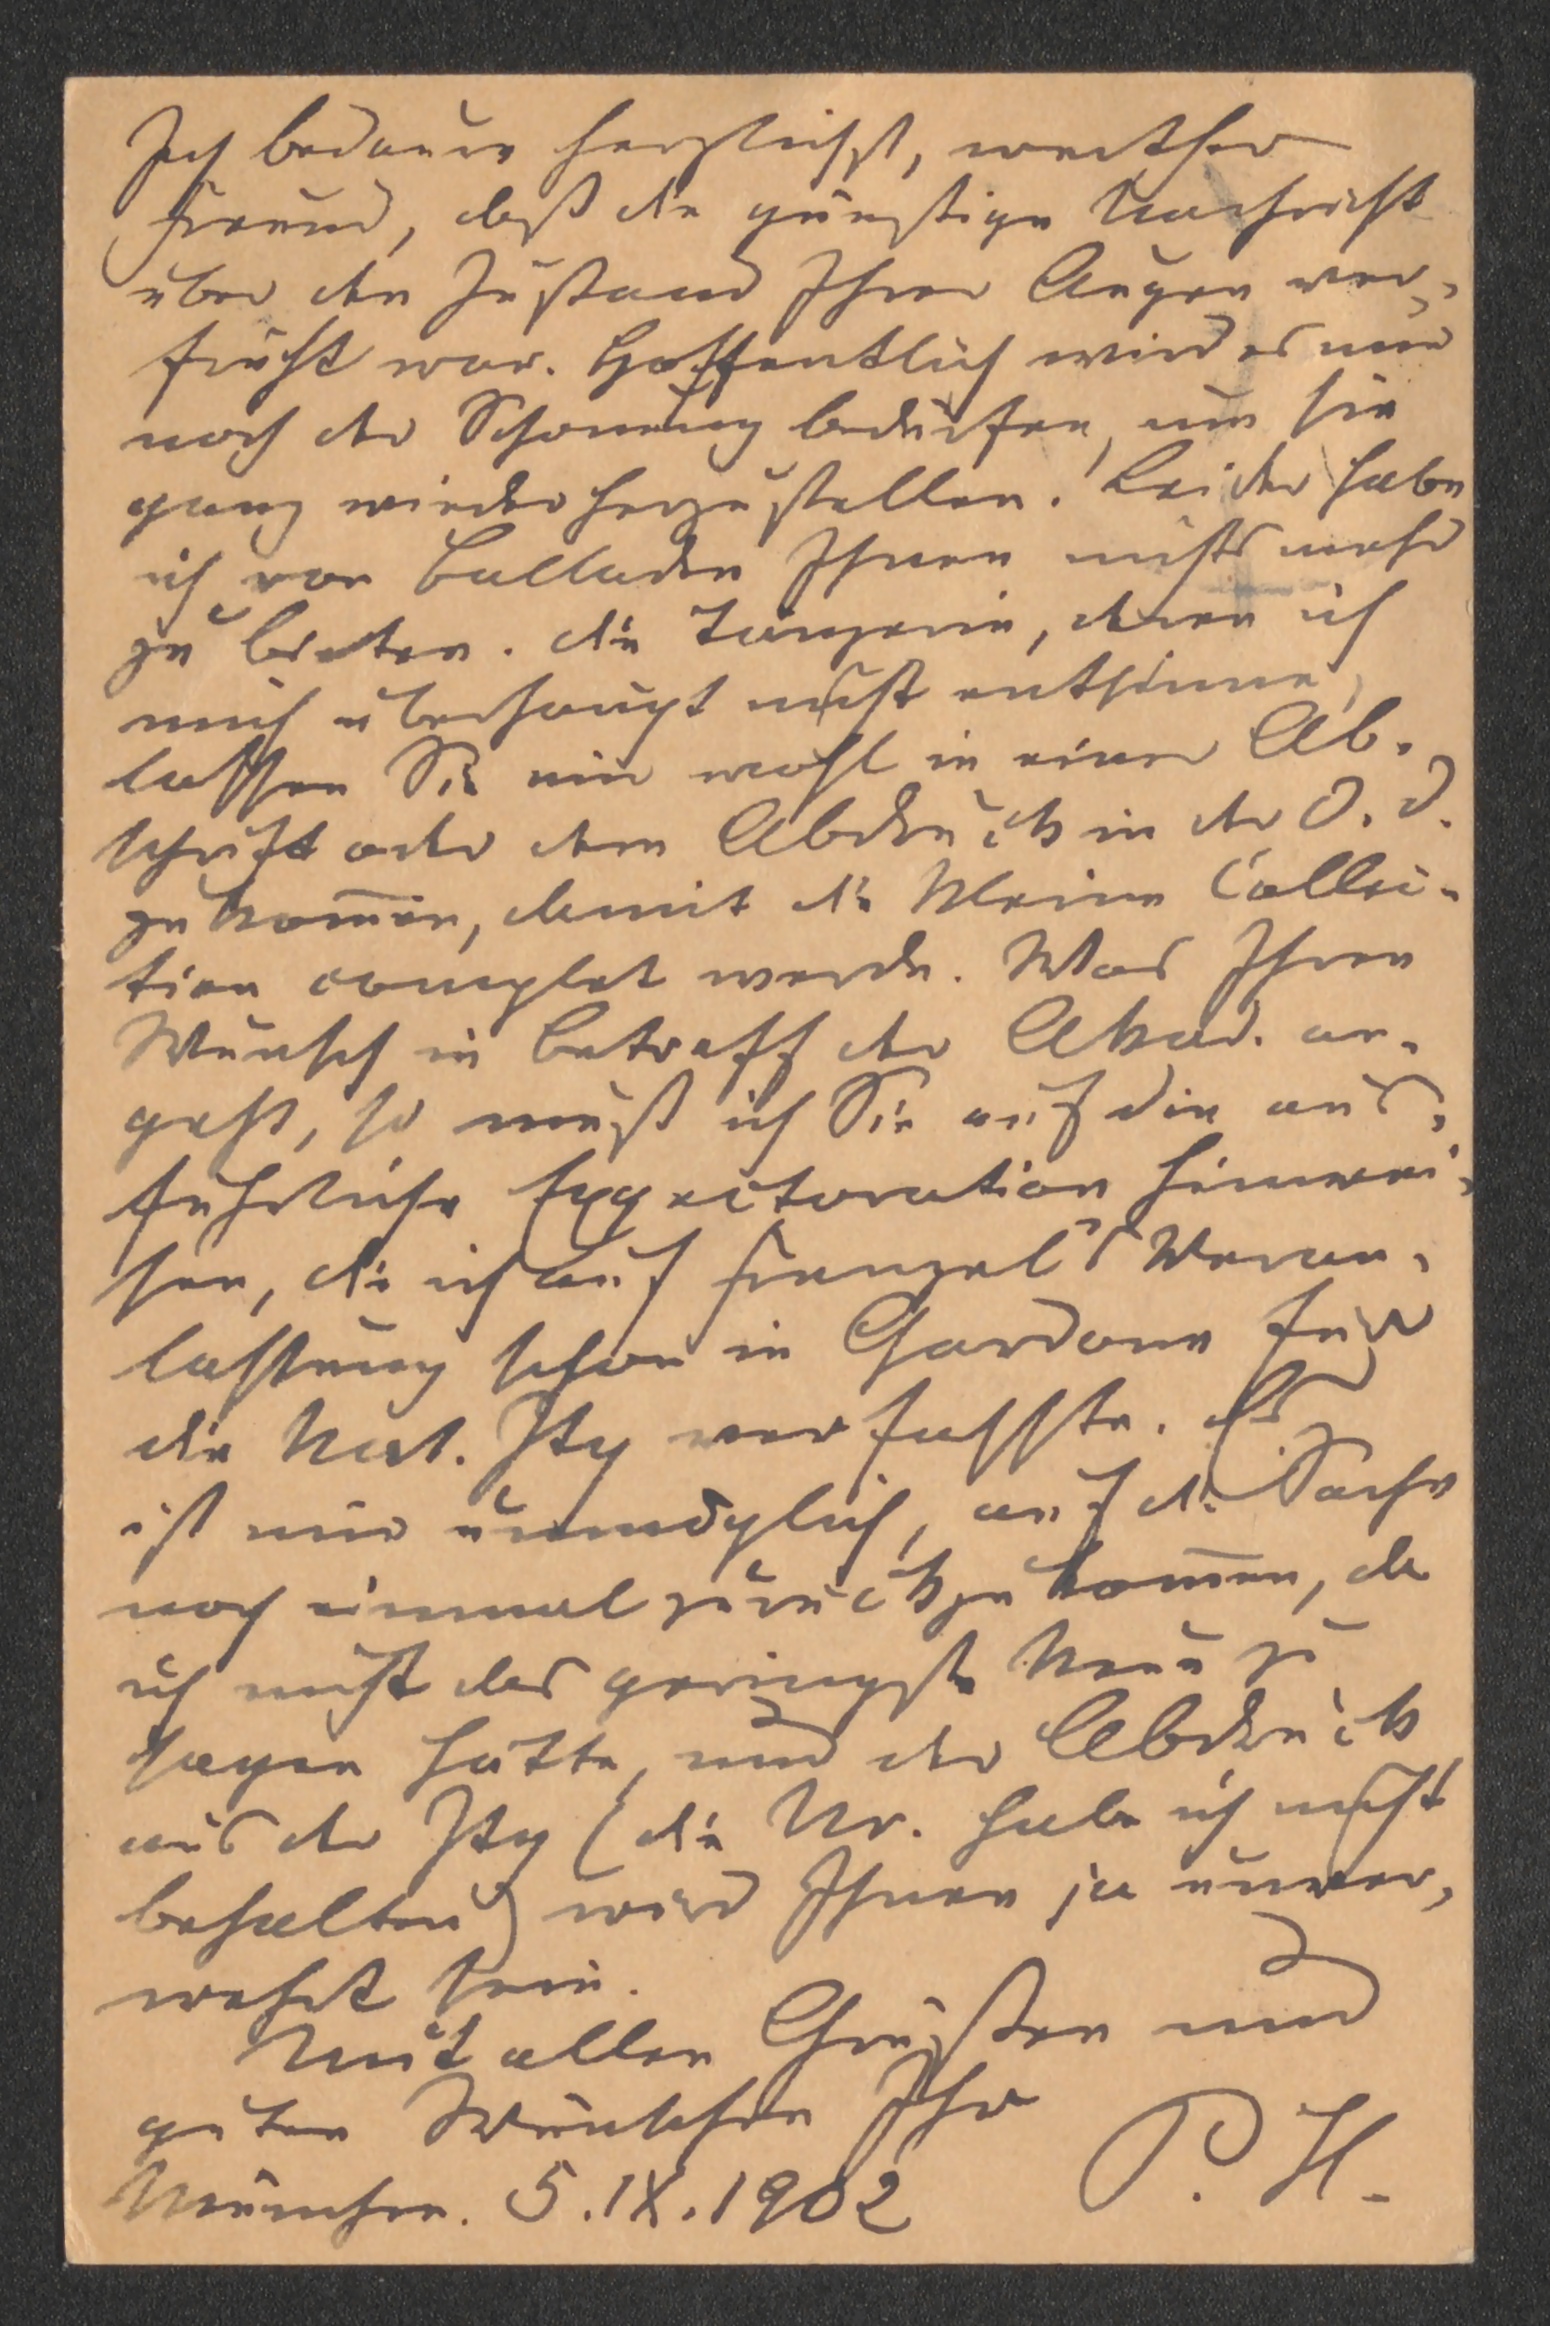 Ich bedaure herzlichst, werther
Freund, daß die günstige Nachricht
über den Zustand Ihrer Augen ver-
früht war. Hoffentlich wird es nur
noch der Schonung bedürfen, um sie
ganz wiederherzustellen. Leider habe
ich von Balladen Ihnen nichts mehr
zu bieten. Die Tänzerin, deren ich
mich überhaupt nicht entsinne,
lassen Sie mir wohl in einer Ab-
schrift oder dem Abdruck in der D. D.
zukom̄en, damit die kleine Collec-
tion complet werde. Was Ihren
Wunsch in Betreff der Akad. an-
geht, so muß ich Sie auf die aus-
führliche Expectoration hinwei-
sen, die ich auf Frenzel's Veran-
lassung schon in Gardone für
die Nat. Ztg verfasste. Es
ist mir unmöglich, auf die Sache
noch einmal zurückzukom̄en, da
ich nicht das geringste Neue zu
sagen hätte, und der Abdruck
aus der Ztg (die Nr. habe ich nicht
behalten) wird Ihnen ja unver-
wehrt sein.
Mit allen Grüßen und
guten Wünschen Ihr
P. H.
München. 5. IX. 1902